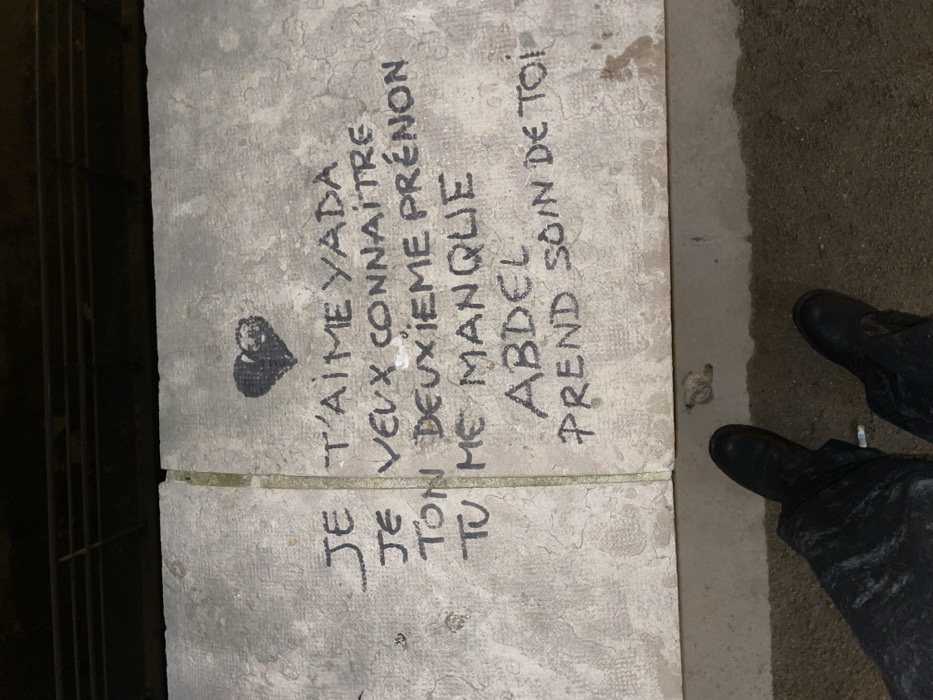 JE T'AiME YADA
JE VEUX CONNAiTRE
TON DEUXIEME PRÉNON
TU ME MANQUE
ABDEL
PREND SOIN DE TOI